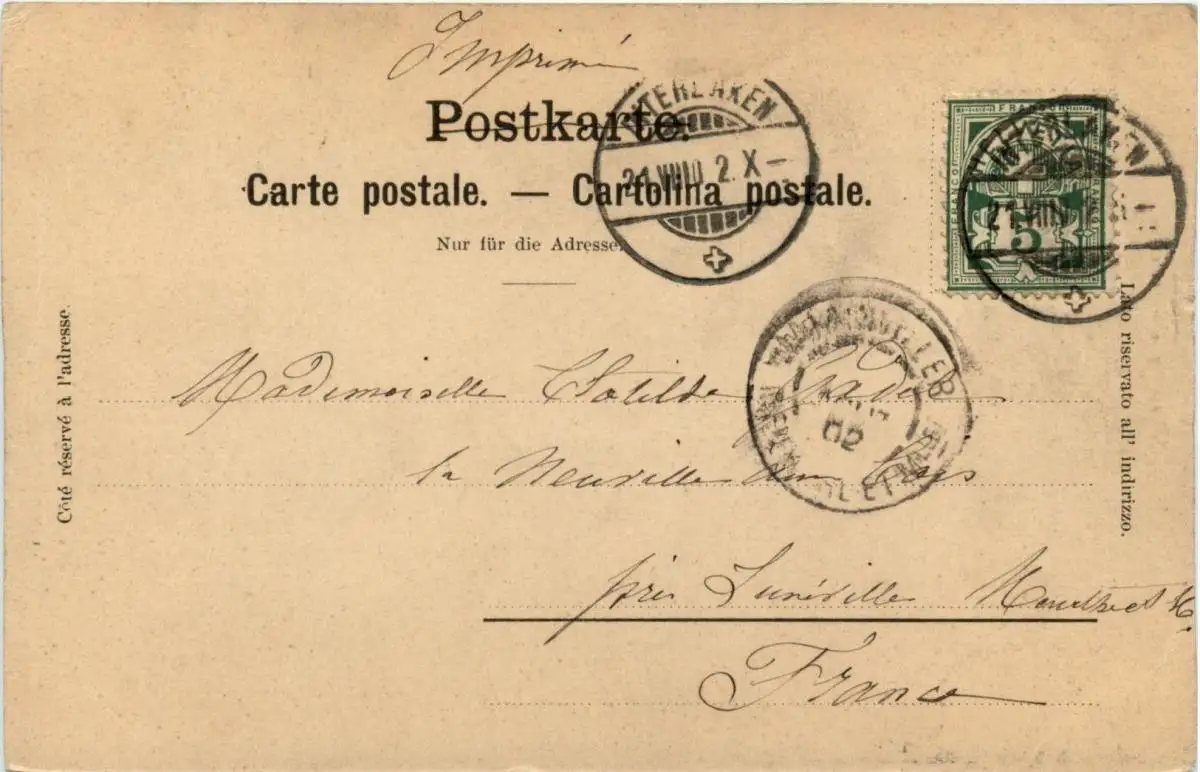 Imprimé
Postkarte.
Carte postale. — Cartolina postale.
Nur für die Adresse.
INTERLAKEN
21.VIII.02. X –
FRANCO
5
INTERLAKEN
21.VIII.
Côté réservé à l'adresse
Lato riservato all' indirizzo.
BLAINVILLE
02
MEURTHE ET MLLE
Mademoiselle Clotilde
la Neuville aux Bois
près Lunéville Meurthe et M.
France